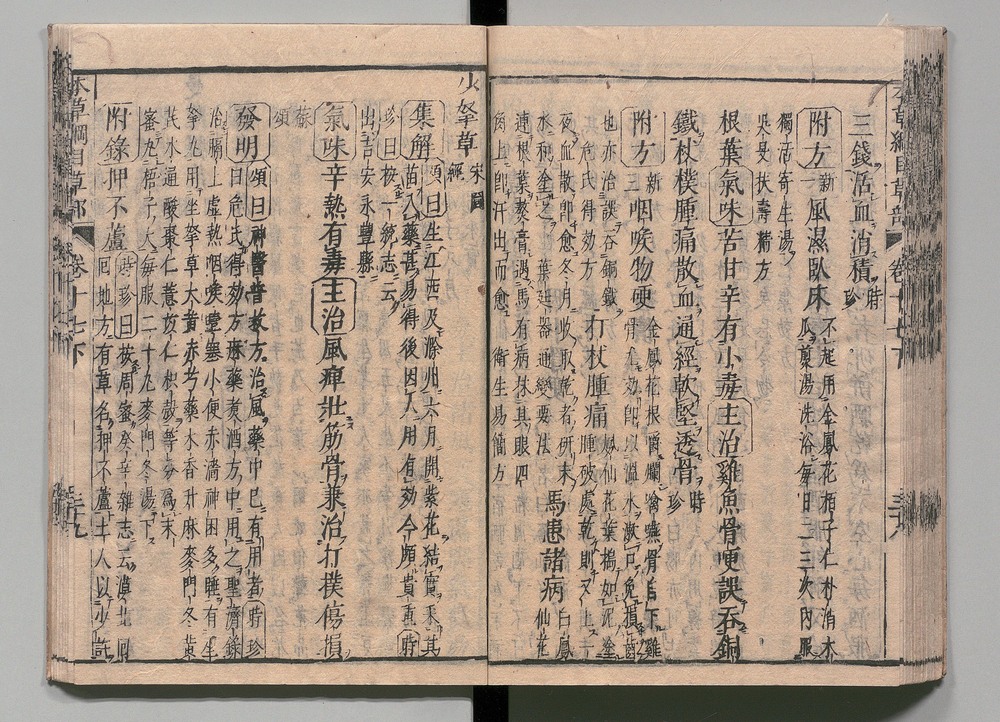 三錢活血消積 時珍
附方 新一 風濕臥床 不起用金鳳花栢子仁朴消木瓜煎湯洗浴每日二三次內服
獨活寄生湯
吳旻扶壽精方
根葉 氣味 苦甘辛有小毒 主治 雞魚骨哽誤吞銅
鐵杖撲腫痛散血通經軟堅透骨 時珍
附方 新三 咽喉物哽 金鳳花根嚼爛噙嚥骨自下雞骨尤効即以溫水漱口免損齒
也亦治誤吞銅鐵 危氏得効方 打杖腫痛 鳳仙花葉搗如泥塗腫破處乾則又上
夜血散即愈冬月收取乾者研末水和塗之 葉廷器通變要法 馬患諸病 白鳳仙花
連根葉熬膏遇馬有病抹其眼四
角上即汗出而愈 衛生易簡方
坐拏草 宋圖經
集解 頌曰 生江西及滁州六月開紫花結實采其苗入藥甚易得後因人用有効今頗貴重 時
珍曰 按一統志云
出吉安永豐縣
氣味 辛熱有毒 主治 風痺壯筋骨兼治打撲傷損
蘇頌
發明 頌曰 神醫普救方治風藥中已有用者 時珍
曰危氏得効方麻藥煮酒方中用之聖濟錄
治膈上虛熱咽喉噎塞小便赤澁神困多睡有坐
拏丸用坐拏草大黃赤芍藥木香升麻麥門冬黃
芪木通酸棗仁薏苡仁枳殼等分爲末
蜜丸梧子大每服二十丸麥門冬湯下
附錄 押不蘆 時珍曰 按周密癸辛雜志云漠北回
回地方有草名押不蘆土人以少許
本草綱目草部 卷十七下 三十九